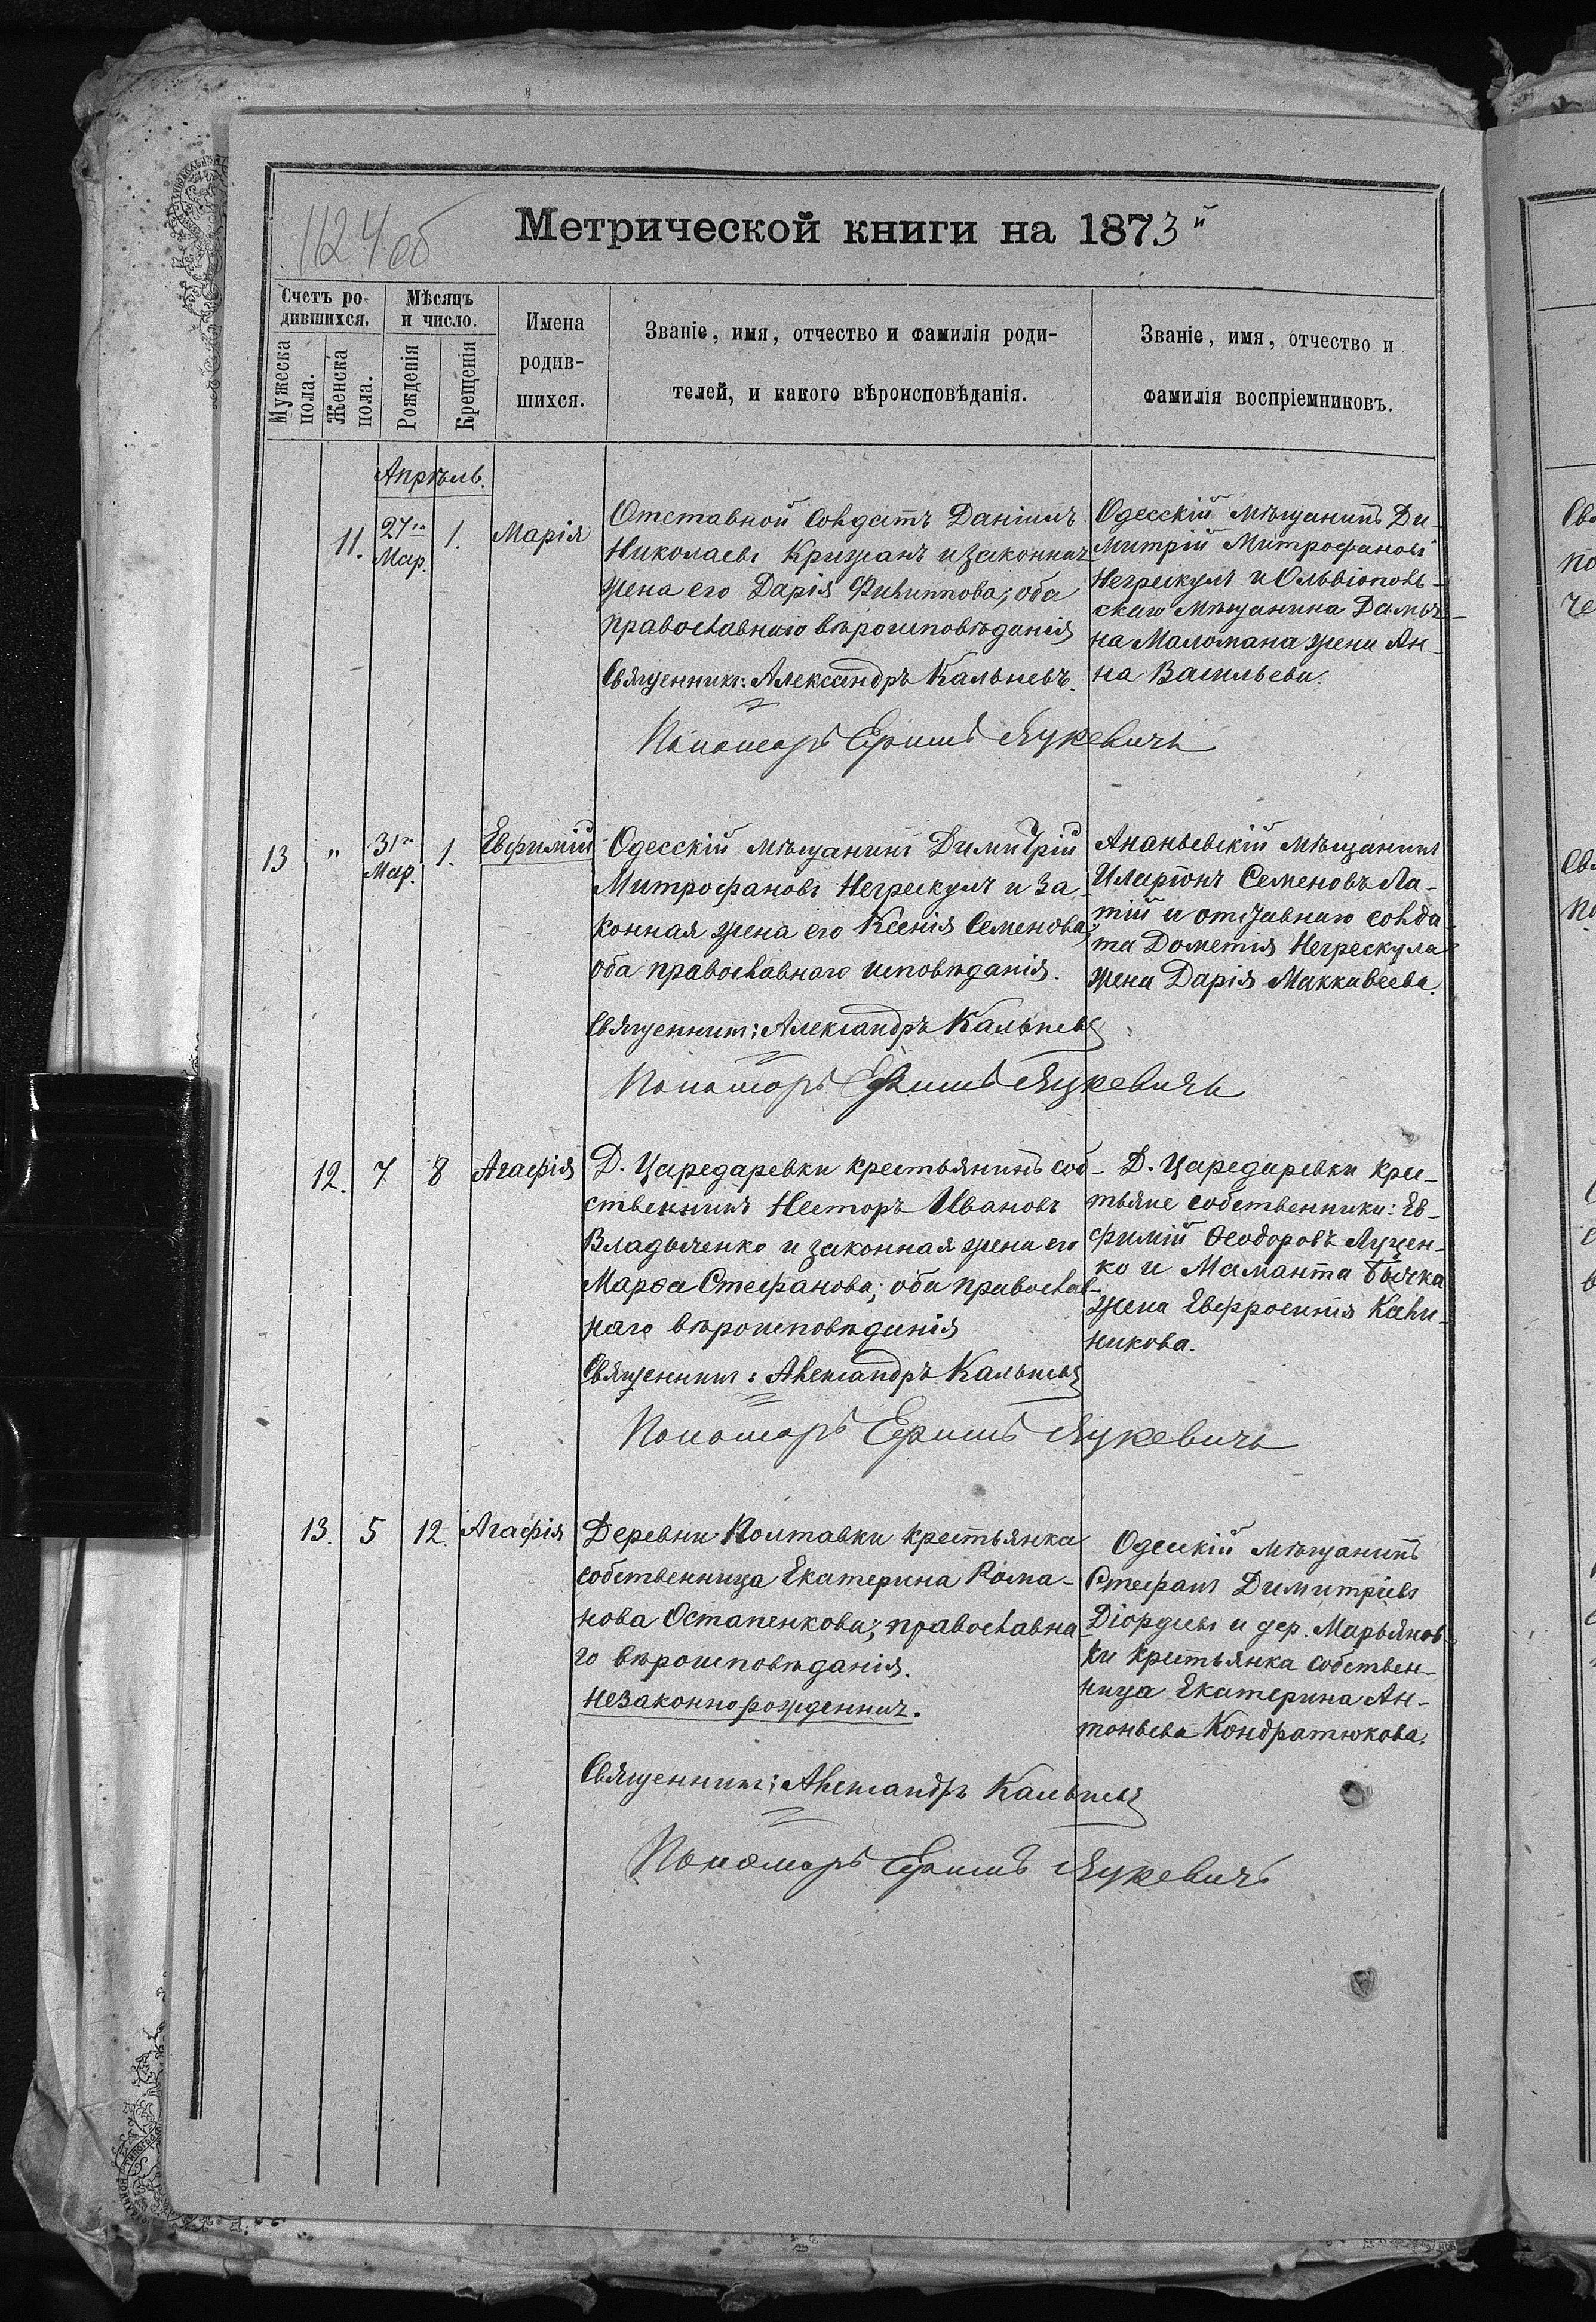 1124 об
Метрической книги на 1873й
Счетъ ро-
дившихся.
Мужеска
пола.
Женска
пола.
Мѣсяцъ
и число.
Рожденія
Крещенія
Имена
родив-
шихся.
Званіе, имя, отчество и фамилія роди-
телей, и какого вѣроисповѣданія.
Званіе, имя, отчество и
фамилія воспріемниковъ.
Апрѣль.
11.
27го
Мар.
1.
Марія
Отставной Солдатъ Даніилъ
Николаевъ Крижанъ и законная
жена его Дарія Филиппова; оба
православнаго вѣроисповѣданія
Священникъ: Александръ Кальневъ.
Пономарь Ефимъ Яукевичъ
Одесскій мѣщанинъ Ди-
митрій Митрофановъ
Негрескулъ и Ольвіополь-
скаго мѣщанина Дамья-
на Маломана жена Ан-
на Васильева.
13
"
31го
Мар.
1.
Евфимій
Одесскій мѣщанинъ Димитрій
Митрофановъ Негрескулъ и за-
конная жена его Ксенія Семенова;
оба православнаго исповѣданія.
Священникъ: Александръ Кальневъ
Пономарь Ефимъ Яукевичъ
Ананьевскій мѣщанинъ
Иларіонъ Семеновъ Ла-
тій и отставнаго солда-
та Дометія Негрескула
жена Дарія Маккавеева.
12.
7
8
Агафія
Д. Царедаревки крестьянинъ соб-
ственникъ Несторъ Ивановъ
Владыченко и законная жена его
Марѳа Стефанова; оба православ-
наго вѣроисповѣданія
Священникъ: Александръ Кальневъ
Пономарь Ефимъ Яукевичъ
Д. Царедаревки крес-
тьяне собственники: Ев-
фимій Ѳеодоровъ Луцен-
ко и Маманта Бычка
жена Евфросинія Кали-
никова.
13.
5
12.
Агафія
Деревни Полтавки крестьянка
собственница Екатерина Рома-
нова Остапенкова; православна
го вѣроисповѣданія.
незаконнорожденная.
Священникъ: Александръ Кальневъ
Пономарь Ефимъ Яукевичъ
Одесскій мѣщанинъ
Стефанъ Димитріевъ
Діордіевъ и дер. Марьянов-
ки крестьянка собствен-
ница Екатерина Ан-
тоньева Кондратюкова.